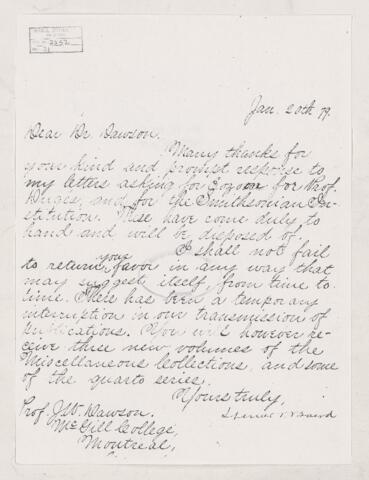 2252
Jan. 20th 79.
Dear Dr. Dawson.
Many thanks for
your kind and prompt response to
my letters asking for Eozoon for Prof.
and for the Smithsonian In-
stitution. These have come duly to
hand and will be disposed of.
I shall not fail
to return your favor in any way that
may suggest itself, from time to
time. There has been a temporary
interruption in our transmission of
publications. You will however re-
ceive three new volumes of the
Miscellaneous Collections, and some
of the quarto series.
Yours truly,
Spencer F. Baird
Prof. J. W. Dawson.
McGill College,
Montreal,